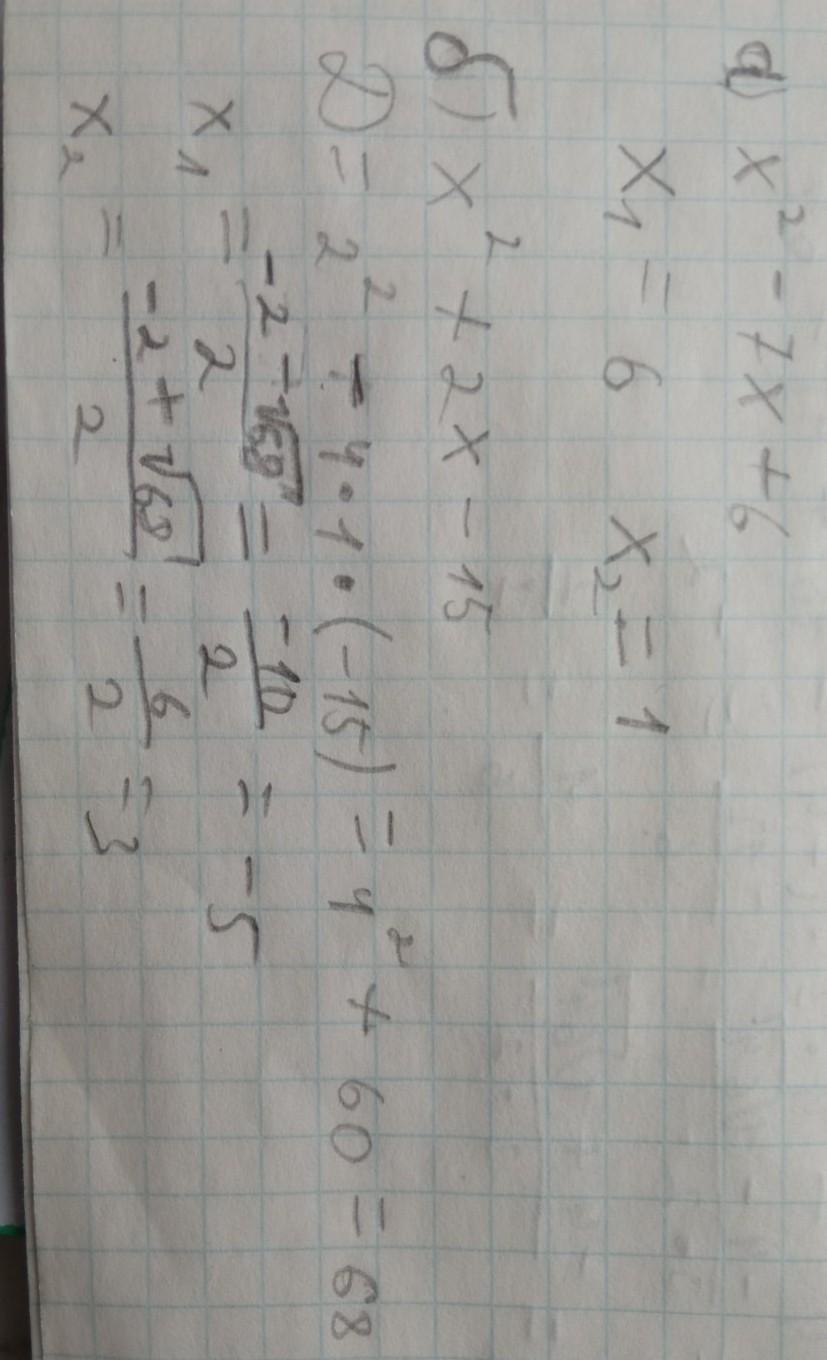 а) x² - 7x + 6
x₁ = 6 x₂ = 1
б) x² + 2x - 15
D = 2² - 4·1·(-15) = 4² + 60 = 68
x₁ = (-2 - √68)/2 = -10/2 = -5
x₂ = (-2 + √68)/2 = 6/2 = 3